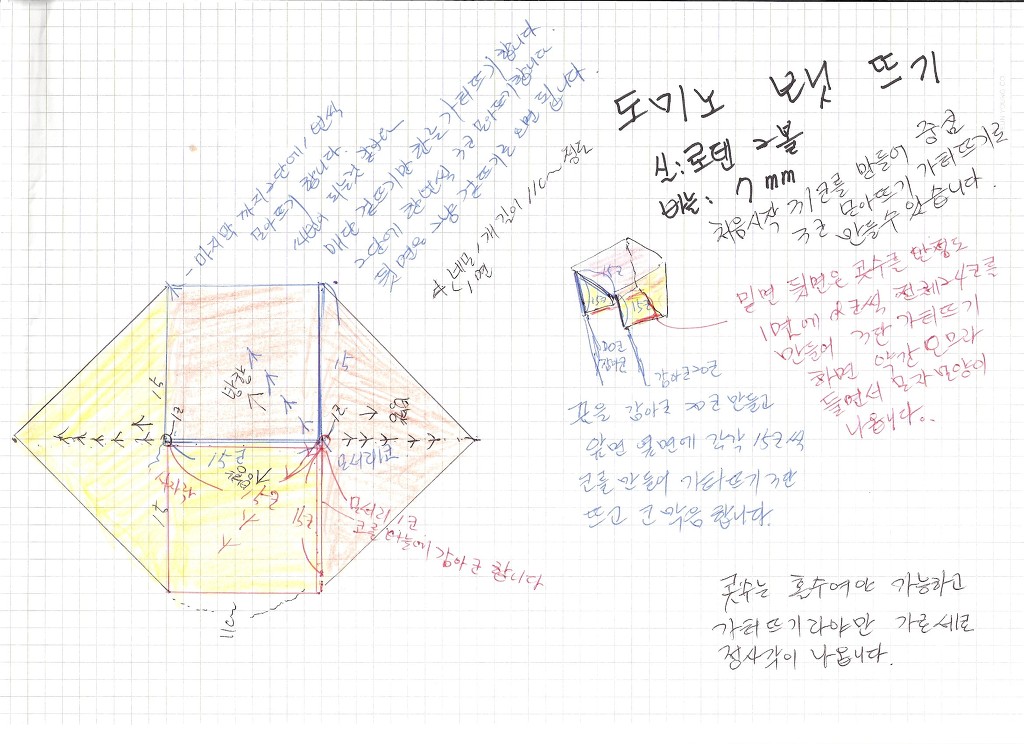 도미노 보닛 뜨기
실:로텐 2볼
바늘: 7mm
처음시작 31코를 만들어 중심
3코 모아뜨기 가터뜨기로
만들수 있습니다.
- 마지막 까지 2단에 1번씩
모아뜨기 합니다.
매단 겉뜨기만 하는 가터뜨기 합니다.
2단에 한번씩 3코 모아뜨기 합니다
뒷면은 그냥 겉뜨기로 오면 됩니다.
한개 길이 11cm 정도
1면
밑면 뒷면은 콧수를 반정도
1면에 8코씩 전체 24코를
만들어 3단 가터뜨기
하면 약간 오므라
들면서 모자 모양이
나옵니다.
15코
15코
15코
20코
감아코
감아코 20코
끈을 감아코 20코 만들고
윗면 옆면에 각각 15코씩
코를 만들어 가터뜨기 3단
뜨고 코 막음 합니다.
15
15
방향
1코
1코
방향
15코
모서리코
방향
시작
15코
15
15코
모서리 1코
코를 바늘에 감아코 합니다
11cm
콧수는 홀수여만 가능하고
가터뜨기라야만 가로세로
정사각이 나옵니다.